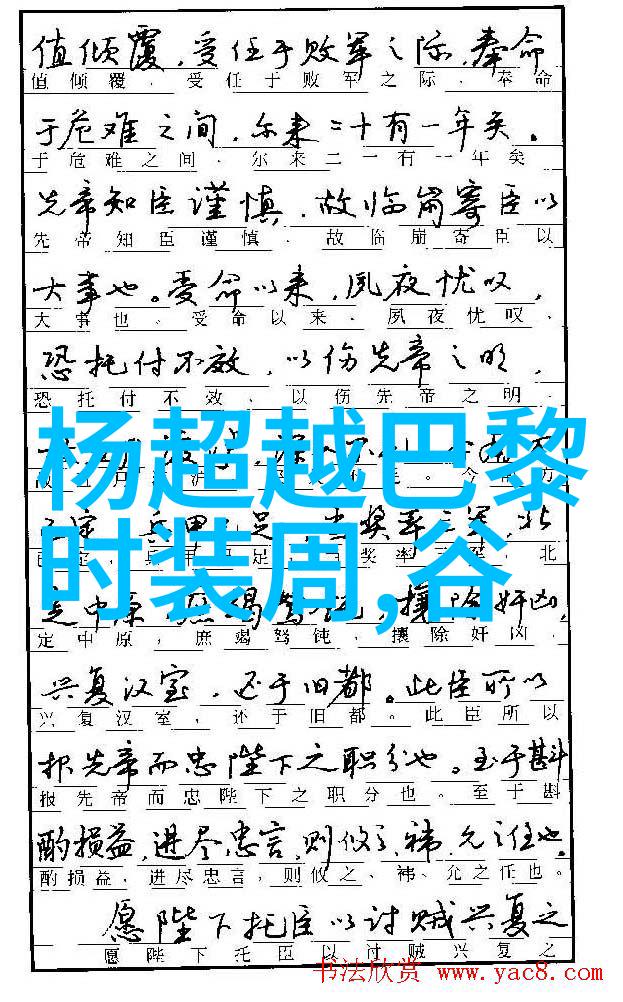 值倾覆，受任于败军之际，奉命
值倾覆，受任于败军之际，奉命
于危难之间，尔来二十有一年矣。
于危难之间，尔来二一有一年矣
先帝知臣谨慎，故临崩寄臣以
先帝知臣谨慎，故临崩寄臣以
大事也。受命以来，夙夜忧叹，
大事也。受命以来，夙夜忧叹，
恐托付不效，以伤先帝之明，
恐托付不效，以伤先帝之明，
杨超越巴黎
时装周,谷
定，兵甲足，当奖率三军，北
足，奖率三军，北
定中原，庶竭驽钝，攘除奸凶，
定中原，庶竭驽钝，攘除奸凶，
兴复汉室，还于旧都。此臣所以
兴复汉室，还于旧都。此臣所以
报先帝而忠陛下之职分也。至于斟
报先帝而忠陛下之职分也。至于斟
酌损益，进尽忠言，则攸之、祎、允之任也。
酌损益，进尽忠言，则攸之、祎、允之任也。
愿陛下托臣以讨贼兴复之
愿陛下托臣以讨贼兴复之
书法欣赏 www.yac8.com